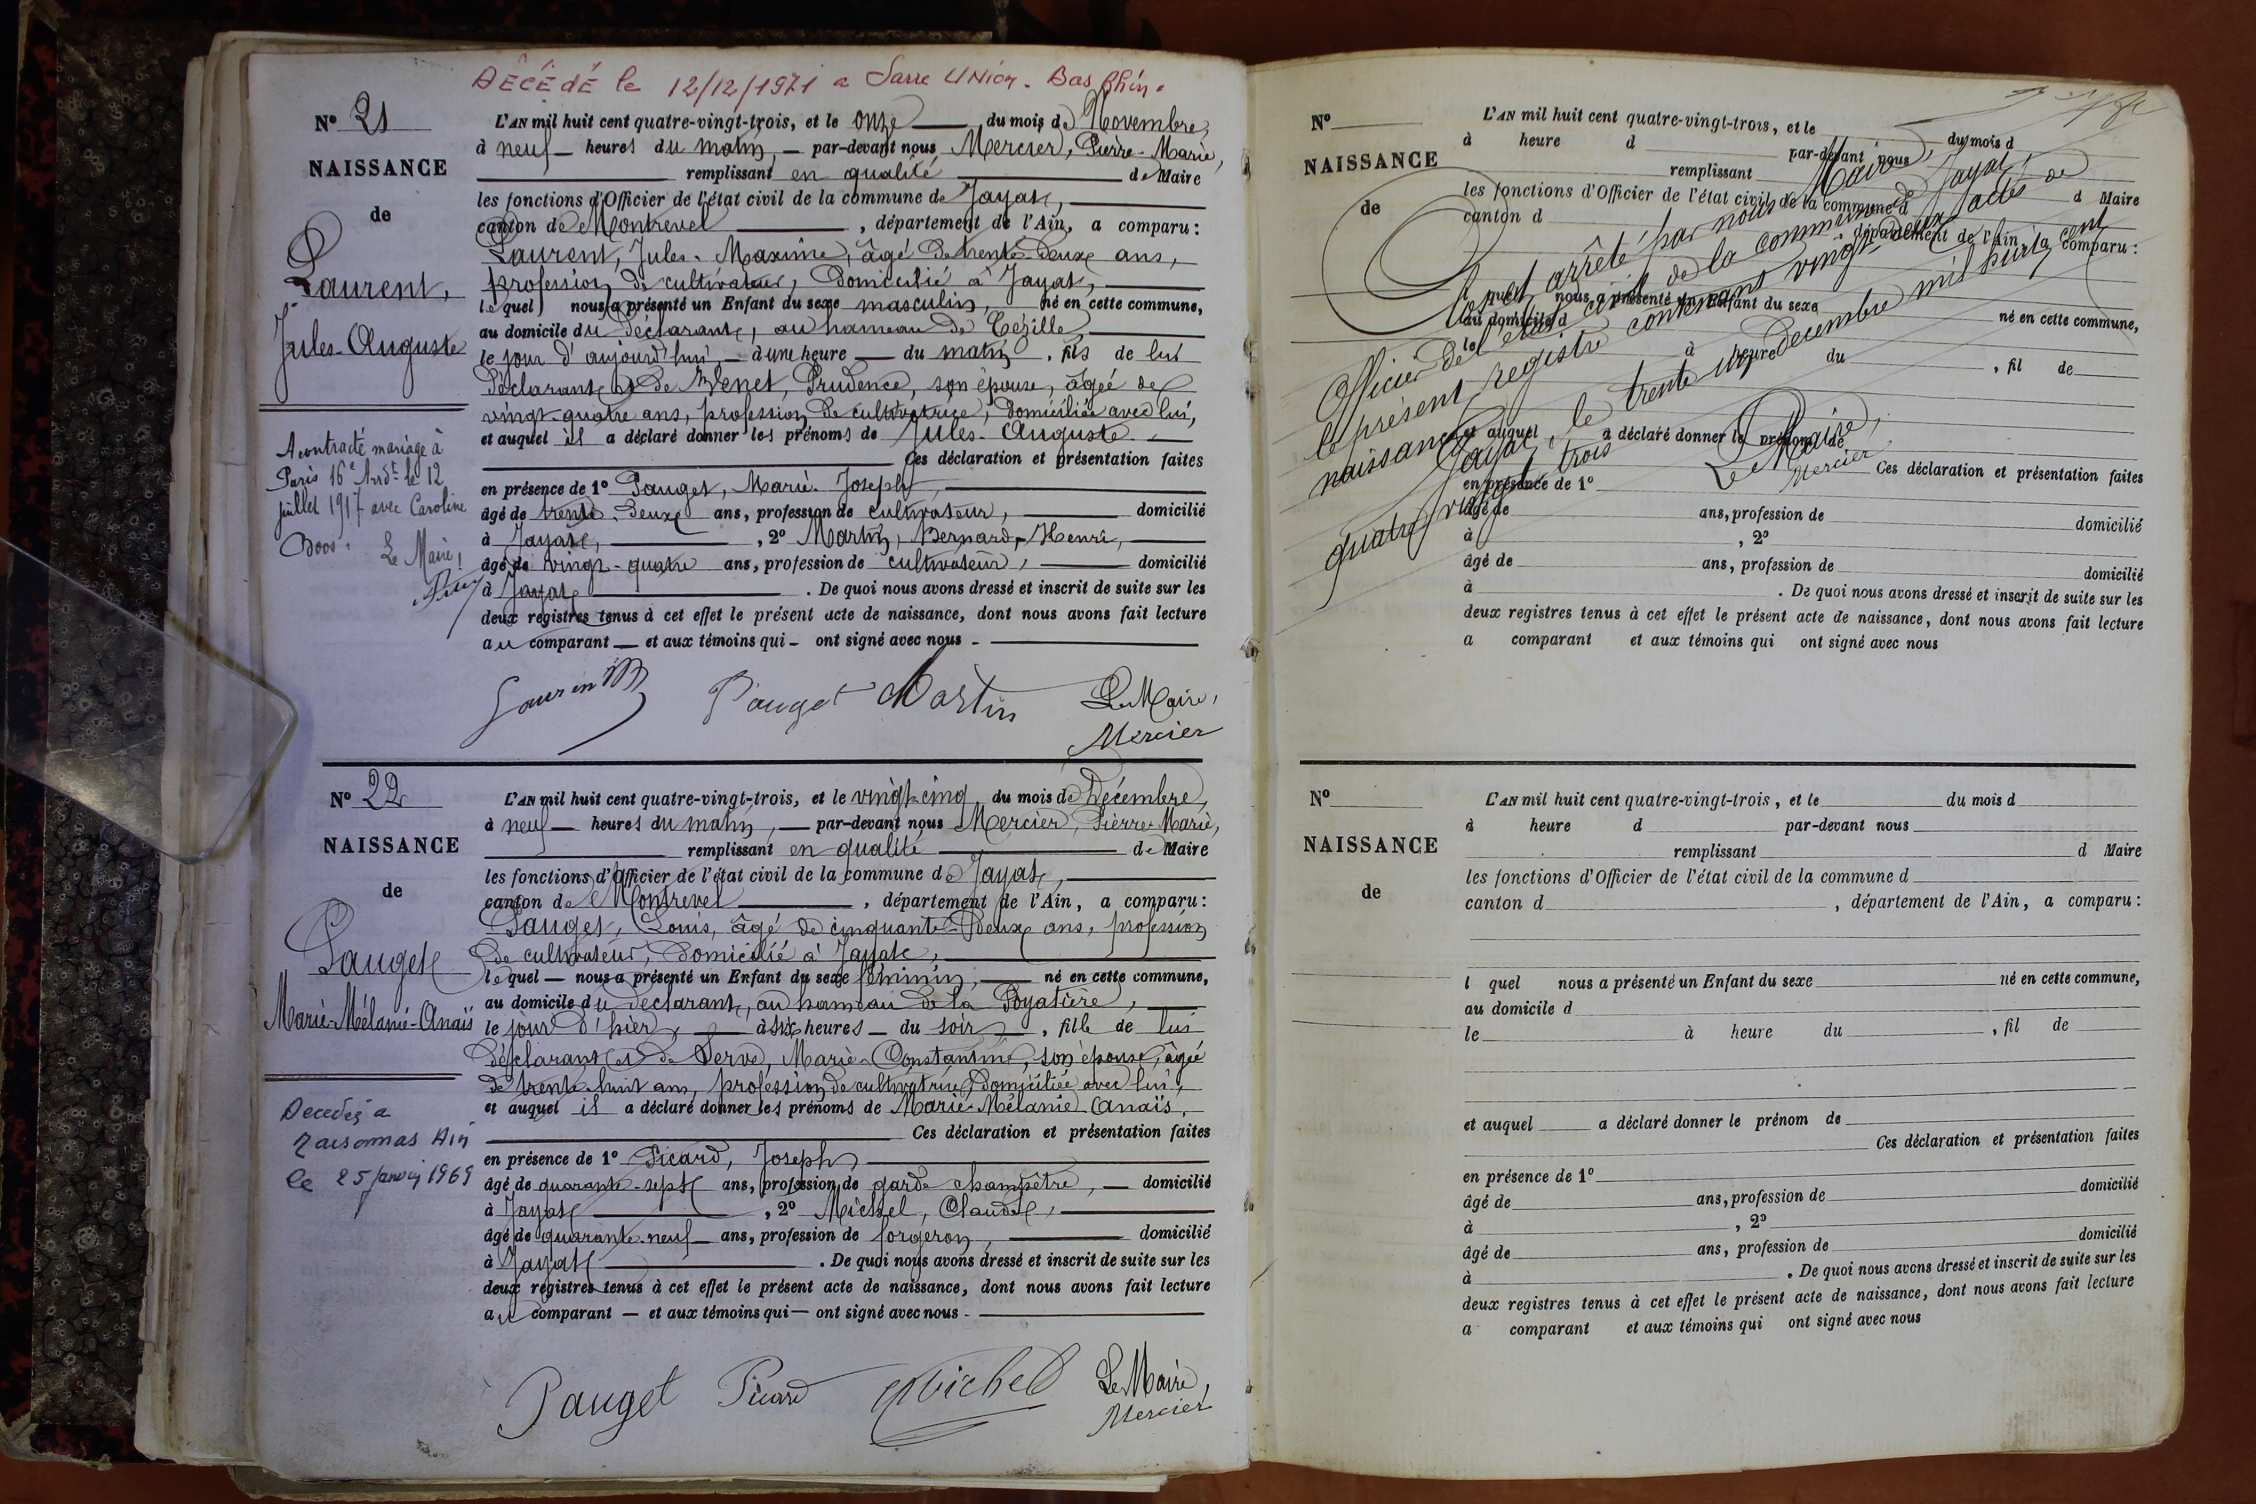 DÉCÉDÉ le 12/12/1971 a Sarre UNion. Bas Rhin.
N° 21
NAISSANCE
de
Laurent,
Jules-Auguste
A contracté mariage à
Paris 16e Arrdt le 12
juillet 1917 avec Caroline
Doos. Le Maire,
L'AN mil huit cent quatre-vingt-trois, et le onze du mois de Novembre,
à neuf heures du matin, par-devant nous Mercier, Pierre-Marie,
remplissant en qualité de Maire
les fonctions d'Officier de l'état civil de la commune de Jayat,
canton de Montrevel, département de l'Ain, a comparu :
Laurent, Jules-Maxime, âgé de trente-deux ans,
profession de cultivateur, domicilié à Jayat,
lequel nous a présenté un Enfant du sexe masculin, né en cette commune,
au domicile du déclarant, au hameau de Cézille,
le jour d'aujourd'hui à une heure du matin, fils de lui
déclarant et de Venet, Prudence, son épouse, âgée de
vingt-quatre ans, profession de cultivatrice, domiciliée avec lui,
et auquel il a déclaré donner les prénoms de Jules-Auguste.
Ces déclaration et présentation faites
en présence de 1° Pauget, Marie-Joseph,
âgé de trente-deux ans, profession de cultivateur, domicilié
à Jayat, 2° Martin, Bernard-Henri,
âgé de vingt-quatre ans, profession de cultivateur, domicilié
à Jayat. De quoi nous avons dressé et inscrit de suite sur les
deux registres tenus à cet effet le présent acte de naissance, dont nous avons fait lecture
au comparant et aux témoins qui ont signé avec nous.
Laurent Pauget Martin Le Maire,
Mercier
N° 22
NAISSANCE
de
Pauget
Marie-Mélanie-Anaïs
Decedeé a
le 25 Janvier 1969
L'AN mil huit cent quatre-vingt-trois, et le vingt-cinq du mois de Décembre,
à neuf heures du matin, par-devant nous Mercier, Pierre-Marie,
remplissant en qualité de Maire
les fonctions d'Officier de l'état civil de la commune de Jayat,
canton de Montrevel, département de l'Ain, a comparu :
Pauget, Louis, âgé de cinquante-deux ans, profession
de cultivateur, domicilié à Jayat,
lequel nous a présenté un Enfant du sexe féminin, né en cette commune,
au domicile du déclarant, au hameau de la Poyatière,
le jour d'hier, à six heures du soir, fille de lui
déclarant et de Serve, Marie-Constantine, son épouse, âgée
de trente-huit ans, profession de cultivatrice, domiciliée avec lui,
et auquel il a déclaré donner les prénoms de Marie-Mélanie-Anaïs.
Ces déclaration et présentation faites
en présence de 1° Picard, Joseph
âgé de quarante-sept ans, profession de garde champêtre, domicilié
à Jayat, 2° Michel, Claude,
âgé de quarante-neuf ans, profession de forgeron, domicilié
à Jayat. De quoi nous avons dressé et inscrit de suite sur les
deux registres tenus à cet effet le présent acte de naissance, dont nous avons fait lecture
au comparant et aux témoins qui ont signé avec nous.
Pauget Picard Michel Le Maire,
Mercier
N°
NAISSANCE
de
L'AN mil huit cent quatre-vingt-trois, et le du mois d
à heure d par-devant nous
remplissant d Maire
les fonctions d'Officier de l'état civil de la commune d
canton d , département de l'Ain, a comparu :
l quel nous a présenté un Enfant du sexe né en cette commune,
au domicile d
le à heure du , fil de
et auquel a déclaré donner le prénom de
Ces déclaration et présentation faites
en présence de 1°
âgé de ans, profession de domicilié
à , 2°
âgé de ans, profession de domicilié
à . De quoi nous avons dressé et inscrit de suite sur les
deux registres tenus à cet effet le présent acte de naissance, dont nous avons fait lecture
a comparant et aux témoins qui ont signé avec nous
Clos et arrêté par nous Maire,
Officier de l'état civil de la commune de Jayat,
le présent registre contenant vingt-deux actes de
naissance. Jayat, le trente un décembre mil huit cent
quatre vingt trois
Le Maire,
Mercier
N°
NAISSANCE
de
L'AN mil huit cent quatre-vingt-trois, et le du mois d
à heure d par-devant nous
remplissant d Maire
les fonctions d'Officier de l'état civil de la commune d
canton d , département de l'Ain, a comparu :
l quel nous a présenté un Enfant du sexe né en cette commune,
au domicile d
le à heure du , fil de
et auquel a déclaré donner le prénom de
Ces déclaration et présentation faites
en présence de 1°
âgé de ans, profession de domicilié
à , 2°
âgé de ans, profession de domicilié
à . De quoi nous avons dressé et inscrit de suite sur les
deux registres tenus à cet effet le présent acte de naissance, dont nous avons fait lecture
a comparant et aux témoins qui ont signé avec nous